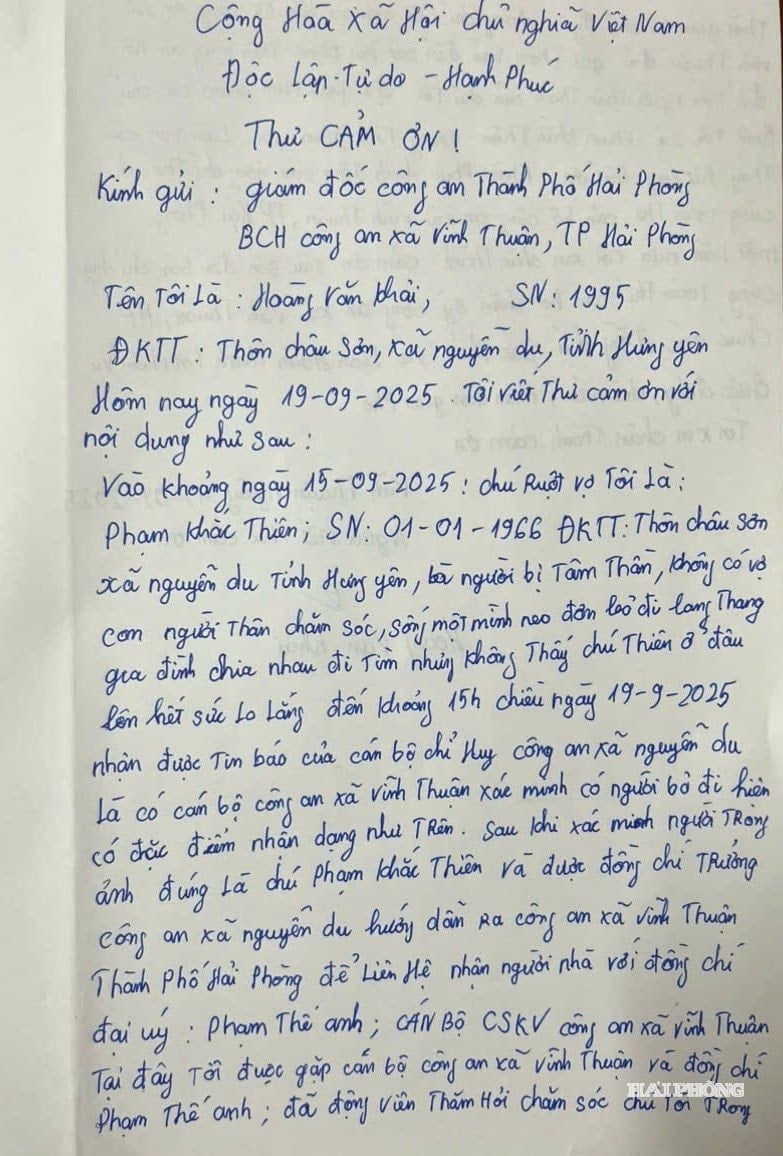 Cộng Hoà Xã Hội chủ nghiã Việt Nam
Độc Lập-Tự do - Hạnh Phúc
Thư CẢM ƠN!
Kính gửi : giám đốc công an Thành Phố Hải Phòng
BCH công an xã Vĩnh Thuận, TP Hải Phòng
Tên Tôi Là : Hoàng Văn Khải, SN: 1995
ĐKTT : Thôn châu Sơn, xã nguyễn du, Tỉnh Hưng yên
Hôm nay ngày 19-09-2025. Tôi viết Thư cảm ơn với
nội dung như sau :
Vào khoảng ngày 15-09-2025: chú Ruột vợ Tôi Là:
Phạm Khắc Thiên; SN: 01-01-1966 ĐKTT: Thôn châu Sơn
xã nguyễn du Tỉnh Hưng yên, là người bị Tâm Thần, không có vợ
con người Thân chăm sóc, sống một mình neo đơn bỏ đi lang Thang
gia đình chia nhau đi Tìm nhưng không Thấy chú Thiên ở đâu
lên hết sức Lo Lắng đến khoảng 15h chiều ngày 19-9-2025
nhận được Tin báo của cán bộ chỉ Huy công an xã nguyễn du
Là có cán bộ công an xã Vĩnh Thuận xác minh có người bỏ đi hiện
có đặc điểm nhận dạng như TRên. Sau khi xác minh người TRong
ảnh đúng Là chú Phạm Khắc Thiên và được đồng chí TRưởng
công an xã nguyễn du hướng dẫn Ra công an xã Vĩnh Thuận
Thành Phố Hải Phòng để Liên Hệ nhận người nhà với đồng chí
đại uý : Phạm Thế anh ; CÁN Bộ CSKV công an xã Vĩnh Thuận
Tại đây Tôi được gặp cán bộ công an xã Vĩnh Thuận và đồng chí
Phạm Thế anh ; đã động viên Thăm Hỏi chăm sóc chú Tôi TRong
HẢI PHÒNG